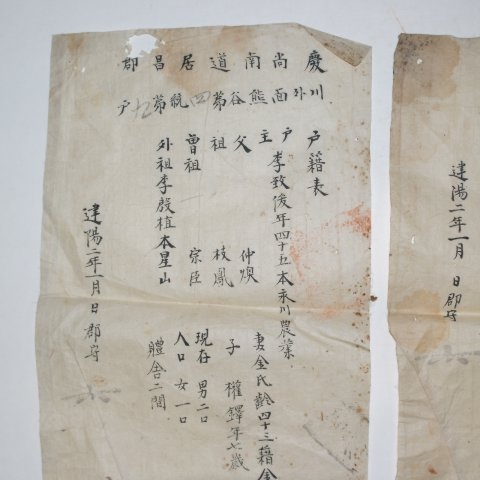 建陽二年一月 日郡守
慶尚南道居昌郡
川外面熊谷第四號第九戶
戶籍表
戶主 李致俊年四十五本永川農業
父 仲煥
祖 枝鳳
曾祖 宗臣
外祖李殷植本星山
妻金氏齡四十三籍金
子 權鐸年七歲
現存 男二口
人口 女一口
體舍二間
建陽二年一月 日郡守